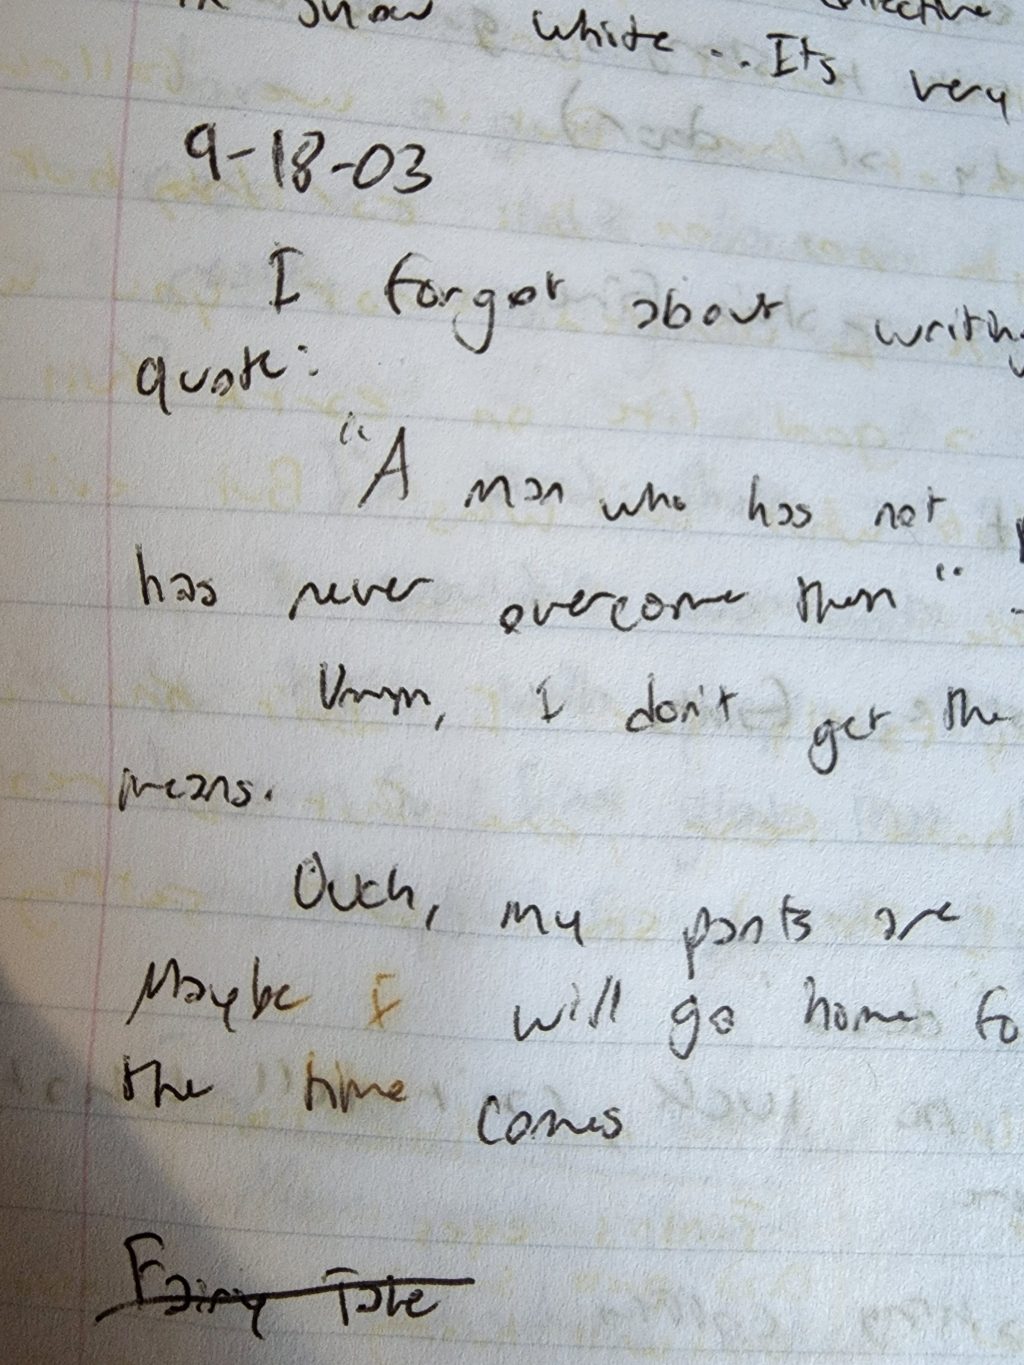 Snow white... Its very
9-18-03
I forgot about writing
quote:
"A man who has not
has never overcome them"
Umm, I don't get the
means.
Ouch, my pants are
Maybe I will go home fo
the time comes
Fairy Tale